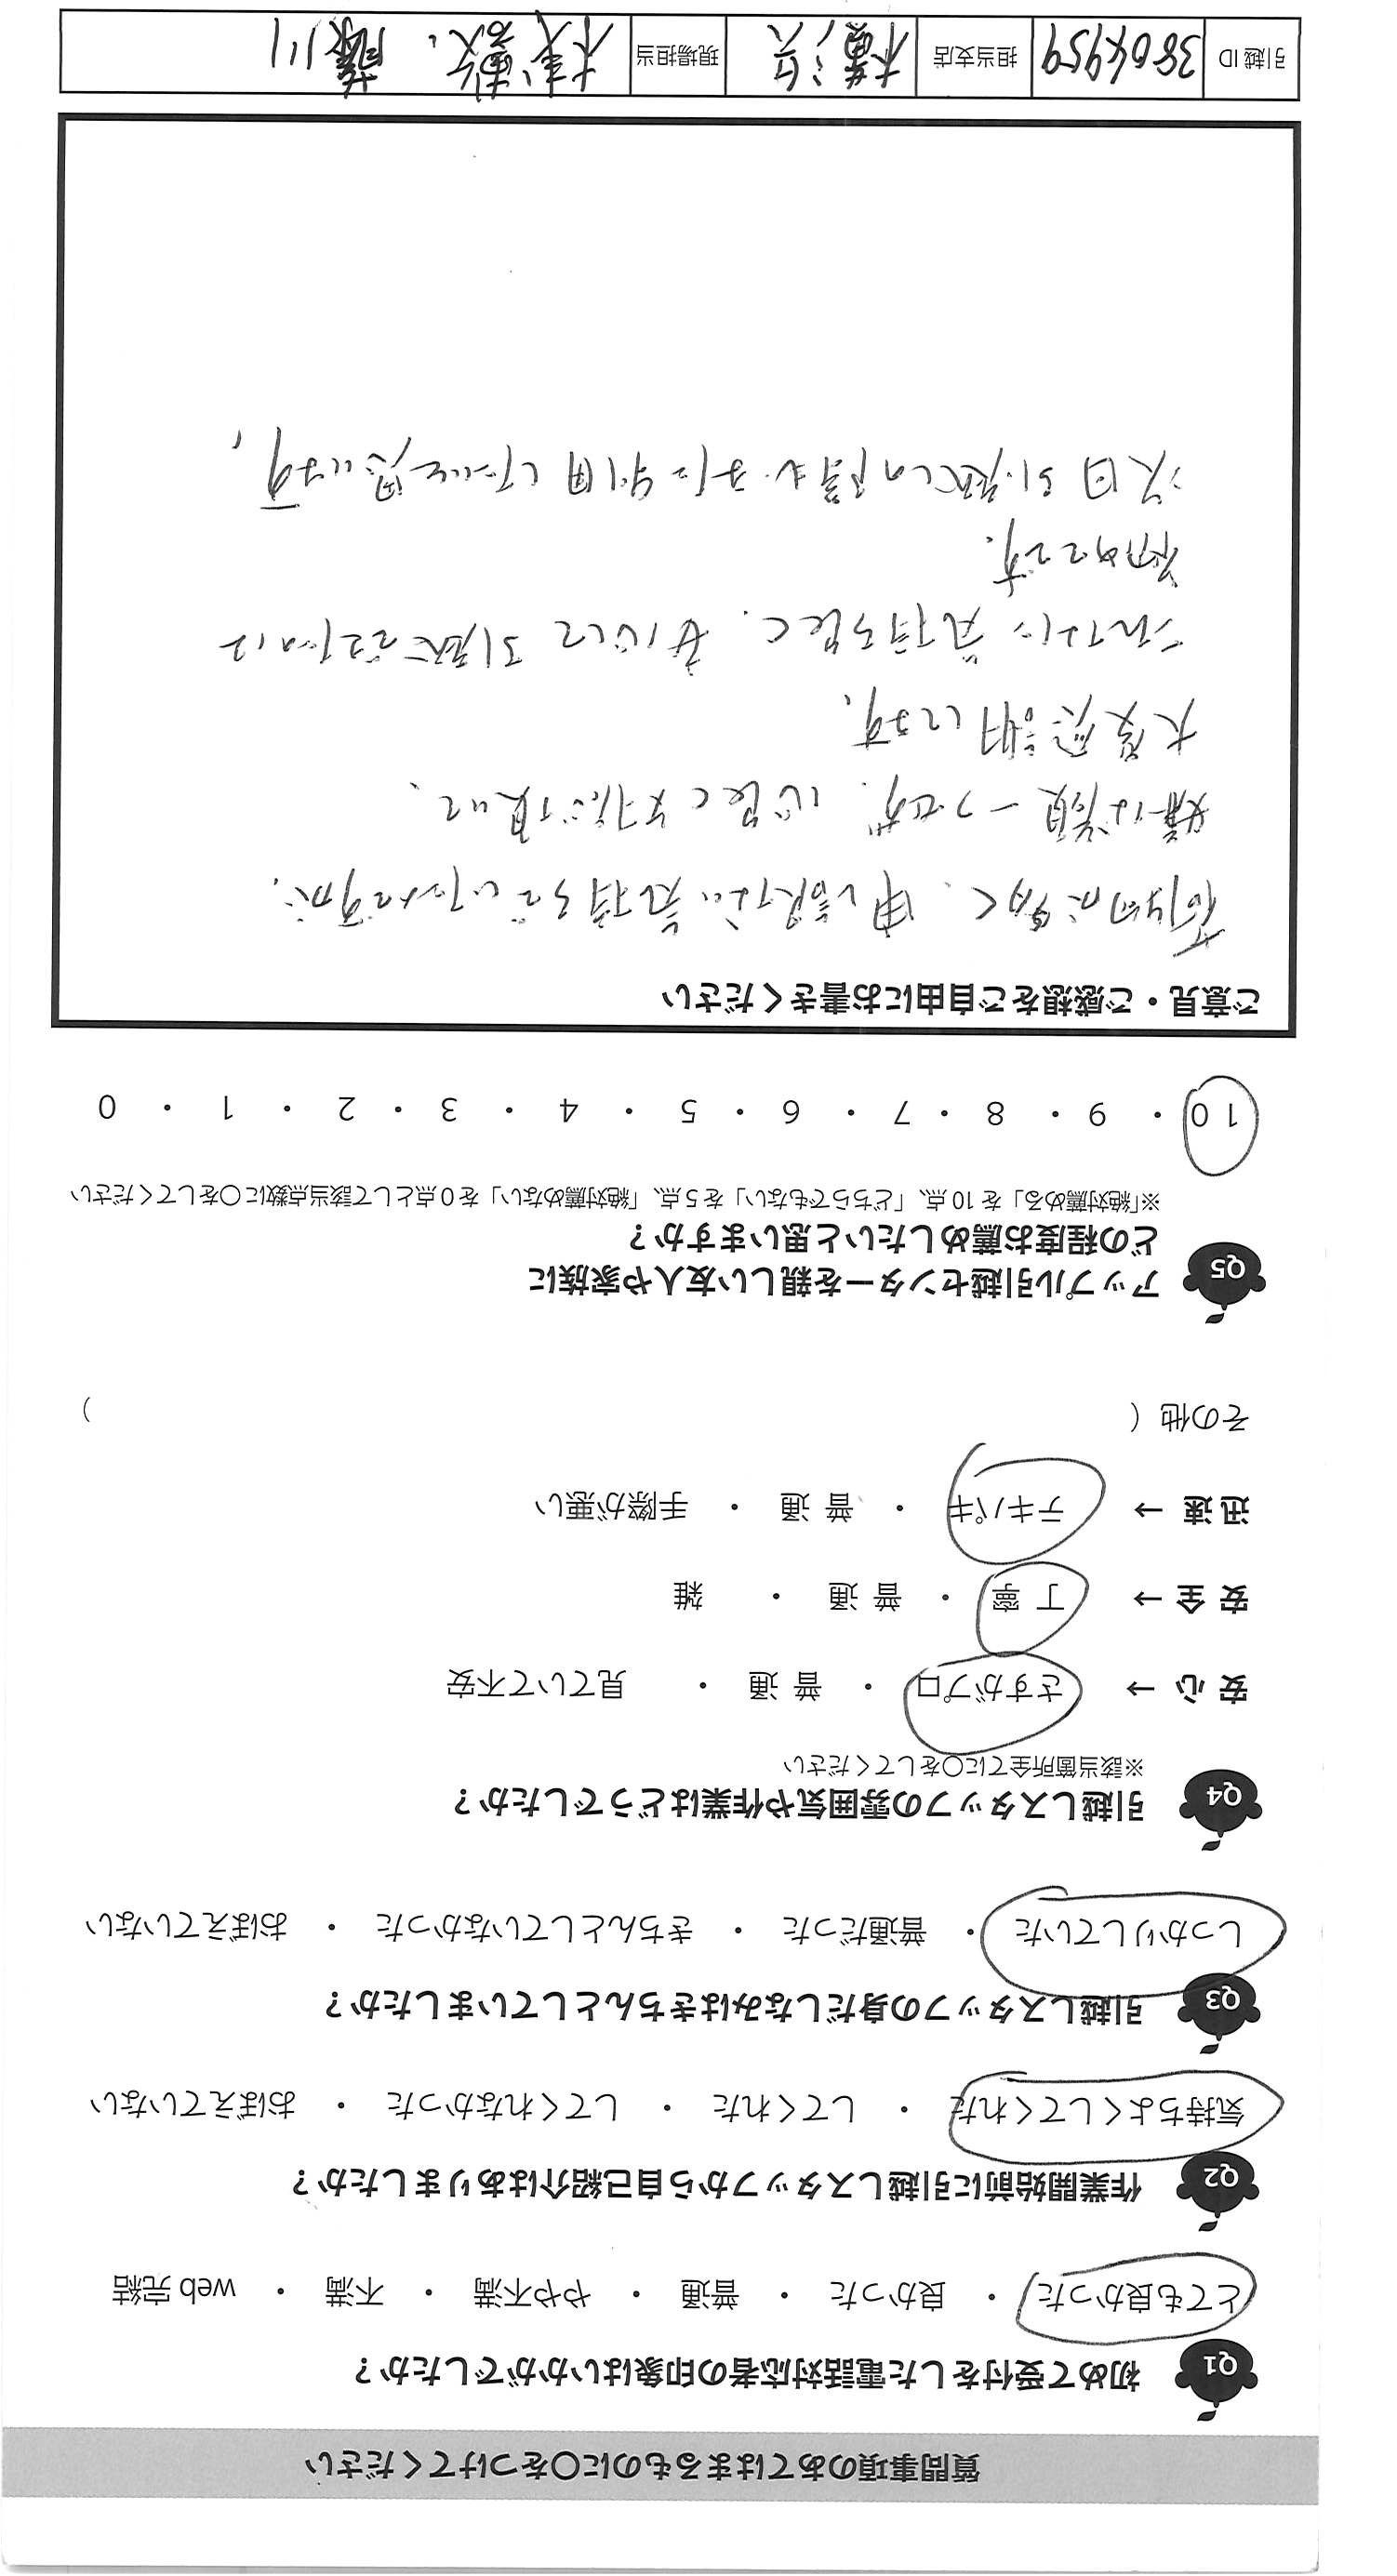 質問事項のあてはまるものに〇をつけてください
Q1 初めて受付をした電話対応者の印象はいかがでしたか？
とても良かった ・ 良かった ・ 普通 ・ やや不満 ・ 不満 ・ web完結
Q2 作業開始前に引越しスタッフから自己紹介はありましたか？
気持ちよくしてくれた ・ してくれた ・ してくれなかった ・ おぼえていない
Q3 引越しスタッフの身だしなみはきちんとしていましたか？
しっかりしていた ・ 普通だった ・ きちんとしていなかった ・ おぼえていない
Q4 引越しスタッフの雰囲気や作業はどうでしたか？
※該当箇所全てに〇をしてください
安心 → さすがプロ ・ 普通 ・ 見ていて不安
安全 → 丁寧 ・ 普通 ・ 雑
迅速 → テキパキ ・ 普通 ・ 手際が悪い
その他（ ）
Q5 アップル引越センターを親しい友人や家族に
どの程度お薦めしたいと思いますか？
※「絶対薦める」を10点、「どちらでもない」を5点、「絶対薦めない」を0点として該当点数に〇をしてください
10 ・ 9 ・ 8 ・ 7 ・ 6 ・ 5 ・ 4 ・ 3 ・ 2 ・ 1 ・ 0
ご意見・ご感想をご自由にお書きください
荷物が多く、申し訳ない気持ちでいたのですが、
嫌な顔一つせず、心良く運んで頂いて、
大変感謝してます。
これなに気持ち良く、安心して引越できたのは
初めてです。
次回引越しの際も、また利用したいと思います。
引越ID 3804959 担当支店 横浜 現場担当 藤川